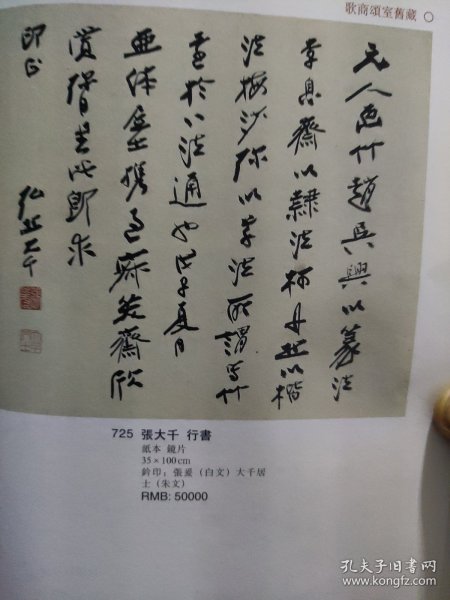 歌商頌室舊藏
元人画竹趙吳興以篆法
李息齋以隸法柯丹丘以楷
法梅沙弥以草法所謂写竹
於八法通也戊子夏日
齋欣
賞書此即求
印正
大千
725 張大千 行書
紙本 鏡片
35×100cm
鈐印：張爰（白文）大千居
士（朱文）
RMB: 50000
孔夫子旧书网
www.kongfz.com